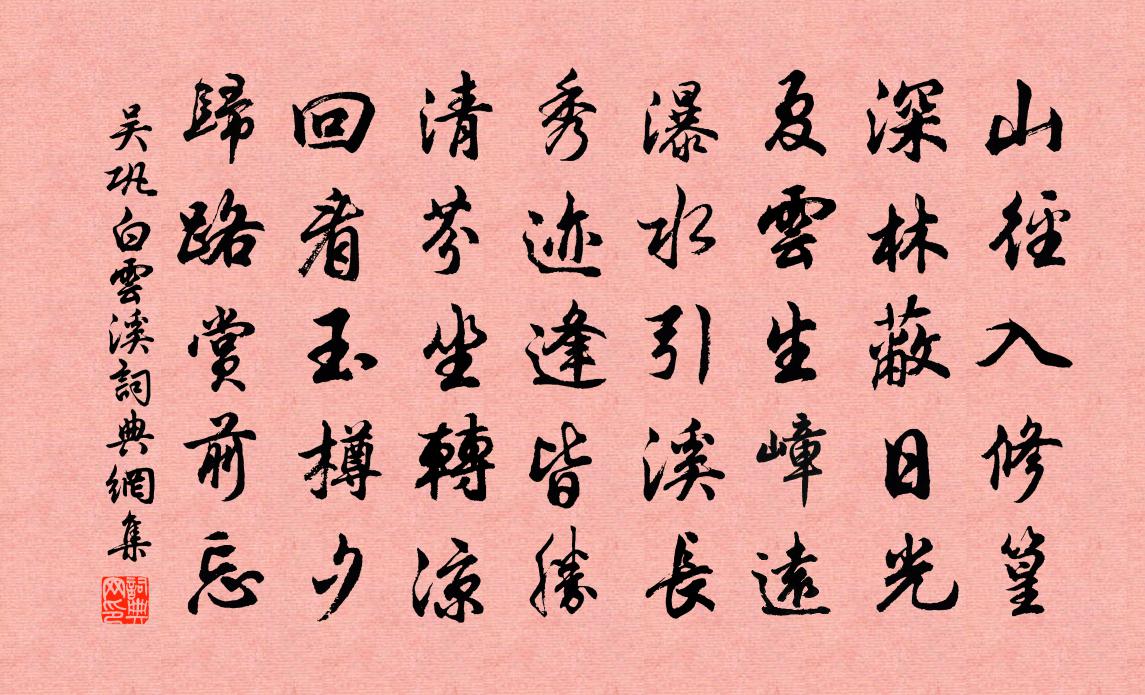 山徑入修篁
深林蔽日光
夏雲生嶂遠
瀑水引溪長
秀迹逢皆勝
清芬坐轉凉
回看玉樽夕
歸路賞前忘
吴巩白雲溪詞典網集
詞典网印